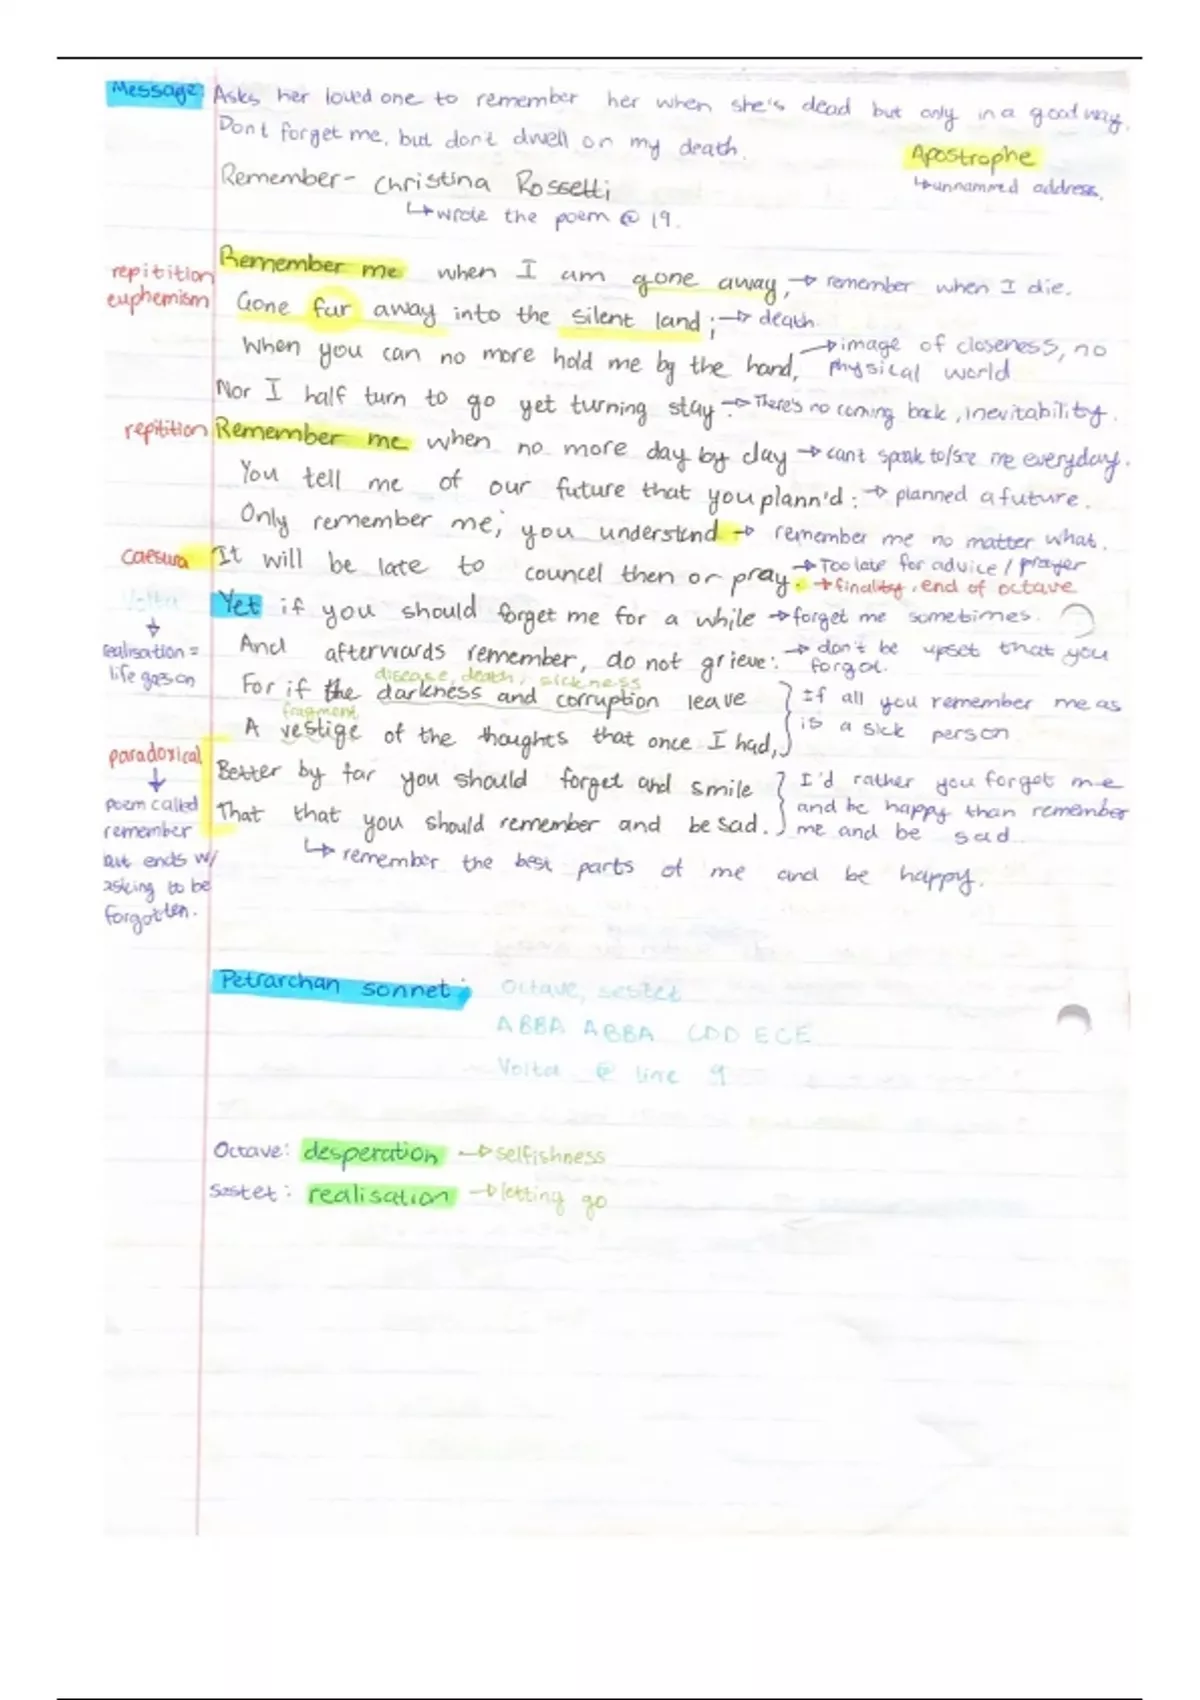 Message: Asks her loved one to remember her when she's dead but only in a good way.
Don't forget me, but don't dwell on my death.
Apostrophe
↳ unnammed address.
Remember - Christina Rossetti
↳ wrote the poem @ 19.
repitition
euphemism
Remember me when I am gone away, → remember when I die.
Gone far away into the silent land; → death.
When you can no more hold me by the hand, → image of closeness, no physical world
Nor I half turn to go yet turning stay. → There's no coming back, inevitability.
repitition Remember me when no more day by day → cant speak to/see me everyday.
You tell me of our future that you plann'd: → planned a future.
Only remember me; you understand → remember me no matter what.
caesura It will be late to councel then or pray. → Too late for advice / prayer
→ finality, end of octave
Volta
↓
realisation =
life goes on
Yet if you should forget me for a while → forget me sometimes.
And afterwards remember, do not grieve: → don't be upset that you forgot.
disease, death, sickness
For if the darkness and corruption leave
fragment
A vestige of the thoughts that once I had,
If all you remember me as
is a sick person
paradoxical
↓
poem called
remember
but ends w/
asking to be
forgotten.
Better by far you should forget and smile
That that you should remember and be sad.
I'd rather you forget me
and be happy than remember
me and be sad.
↳ remember the best parts of me and be happy.
Petrarchan sonnet: Octave, sestet
ABBA ABBA CDD ECE
Volta @ line 9
Octave: desperation → selfishness
Sestet: realisation → letting go